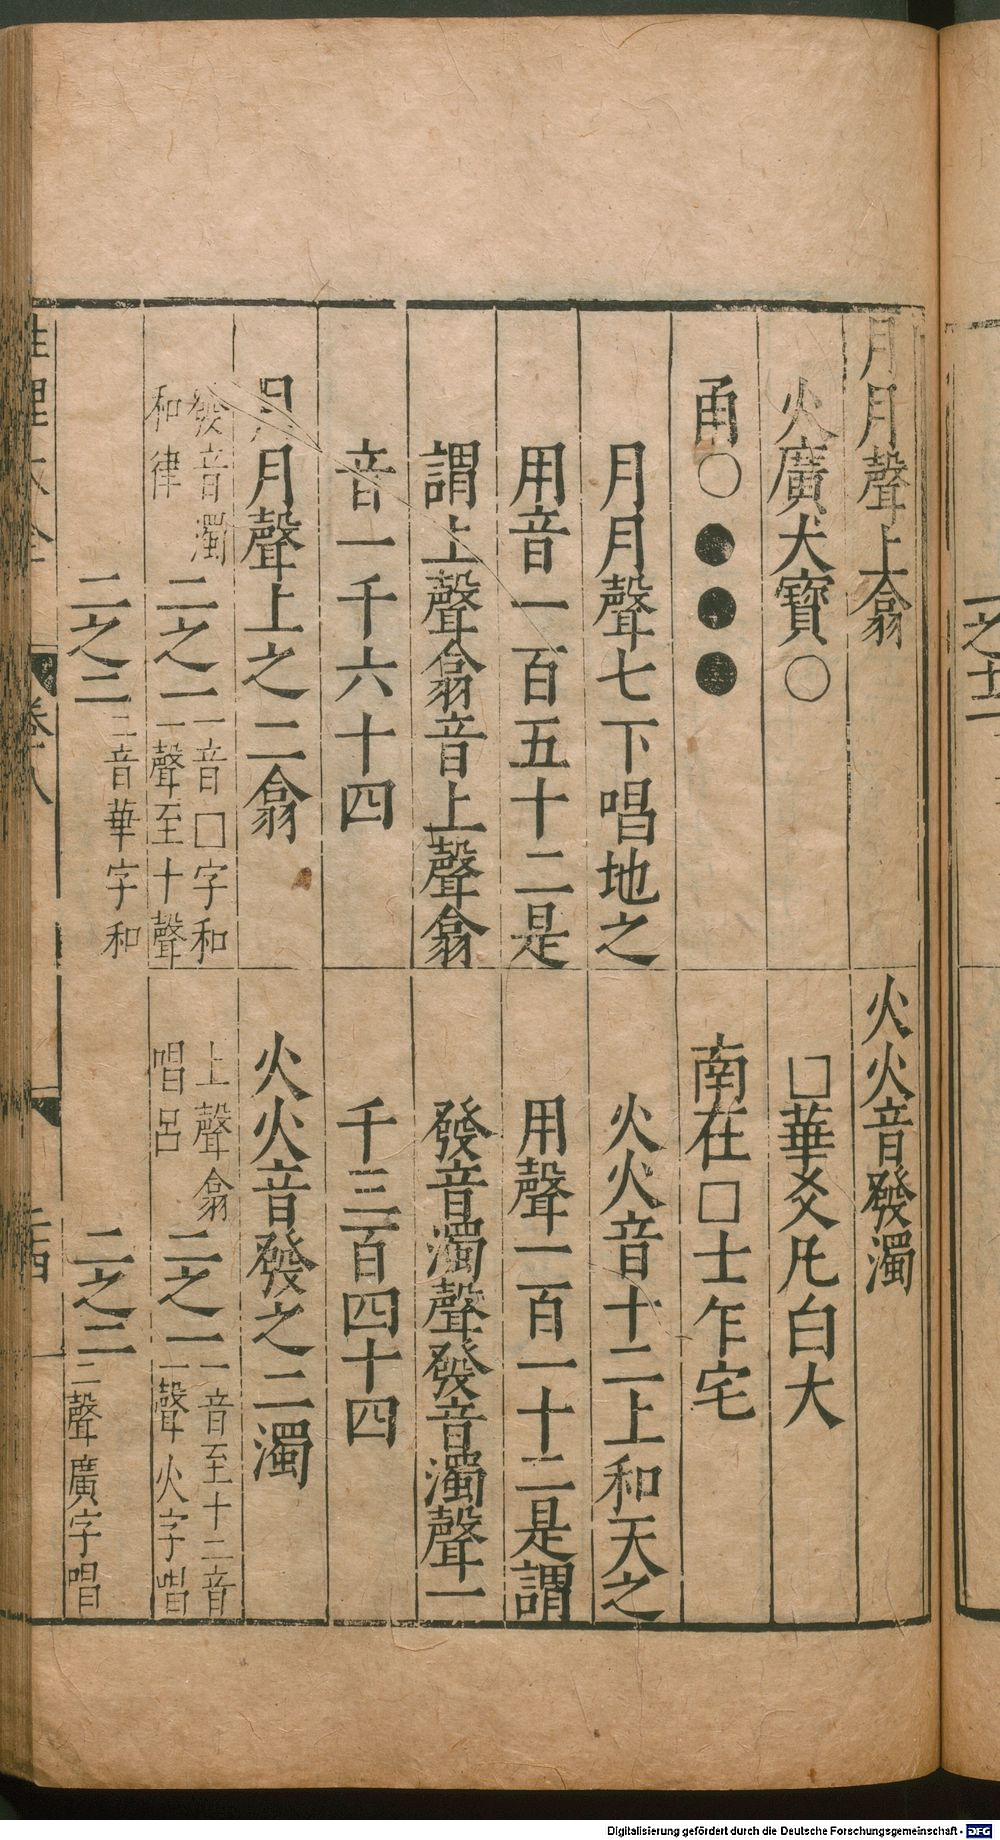 月月聲上翕
火火音發濁
火廣犬寶○
□華爻凡白大
甬○●●●
南在□士乍宅
月月聲七下唱地之
火火音十二上和天之
用音一百五十二是
用聲一百一十二是謂
謂上聲翕音上聲翕
發音濁聲發音濁聲一
音一千六十四
千三百四十四
月月聲上之二翕
火火音發之二濁
發音濁
和律
二之一
一音□字和
一聲至十聲
上聲翕
唱呂
二之一
一音至十二音
一聲火字唱
二之二
二音華字和
二之二
二聲廣字唱
性理大全
卷八
二之十二
Digitalisierung gefördert durch die Deutsche Forschungsgemeinschaft - DFG